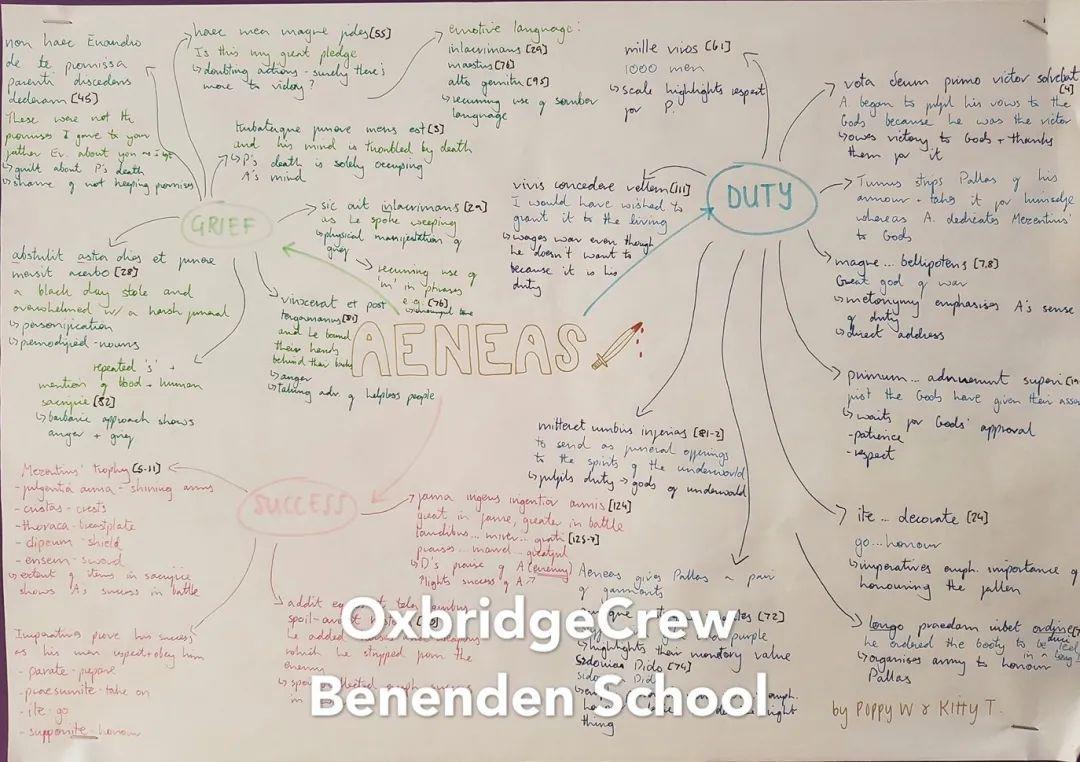 AENEAS
GRIEF
non haec Euandro
de te promissa
parenti discedens
dederam [45]
These were not the
promises I gave to your
father Ev. about you
↳ guilt about P's death
↳ shame of not keeping promises
haec mea magna fides [55]
Is this my great pledge
↳ doubting actions - surely there's
more to victory?
emotive language:
inlacrimans [29]
maestus [76]
alto gemitu [95]
↳ recurring use of somber
language
turbataque funere mens est [3]
and his mind is troubled by death
↳ P's death is solely occupying
A's mind
sic ait inlacrimans [29]
as he spoke weeping
↳ physical manifestation of
grief
→ recurring use of
'm' in phrases
e.g. [76]
abstulit astra dies et funere
mersit acerbo [28]
a black day stole and
overwhelmed w/ a harsh funeral
↳ personification
↳ premodified nouns
vinxerat et post
tergamanus [81]
and he bound
their hands
behind their backs
↳ anger
↳ taking adv. of helpless people
repeated 's' +
mention of blood + human
sacrifice [82]
↳ barbaric approach shows
anger + grief
DUTY
mille viros [61]
1000 men
↳ scale highlights respect
for P.
vivis concedere vellem [111]
I would have wished to
grant it to the living
↳ wages war even though
he doesn't want to
because it is his
duty
vota deum primo victor solvebat
[4]
A. began to fulfil his vows to the
Gods because he was the victor
↳ owes victory to Gods + thanks
them for it
Turnus strips Pallas of his
armour + takes it for himself
whereas A. dedicates Mezentius'
to Gods
magne... bellipotens [7,8]
Great god of war
↳ metonymy emphasises A's sense
of duty
↳ direct address
primum... adnuerunt superi
just the Gods have given their
↳ waits for Gods' approval
- patience
- respect
ite... decorate [24]
go... honour
↳ imperatives emph. importance of
honouring the fallen
longo praedam iubet ordine
duci
he ordered the booty to be
in a long
↳ organises army to honour
Pallas
mitteret umbris inferias [81-2]
to send as funeral offerings
to the spirits of the underworld
↳ fulfils duty → gods of underworld
Aeneas gives Pallas a pair
of garments
[72]
purple
↳ highlights their monetary value
Sidonian Dido [74]
Dido
emph.
right
thing
SUCCESS
Mezentius' trophy [5-11]
- fulgentia arma - shining arms
- cristas - crests
- thoraca - breastplate
- clipeum - shield
- ensem - sword
↳ extent of items in sacrifice
shows A's success in battle
fama ingens ingentior armis [124]
great in fame, greater in battle
laudibus... mirer... [125-7]
praises... marvel... grateful
↳ D's praise of A (enemy)
'lights success of A
addit
spoil
he added
which he stripped from the
enemy
Imperatives prove his success
as his men respect + obey him
- parate - prepare
- praesumite - take on
- ite - go
- supponite - honour
OxbridgeCrew
Benenden School
by Poppy W & Kitty T.